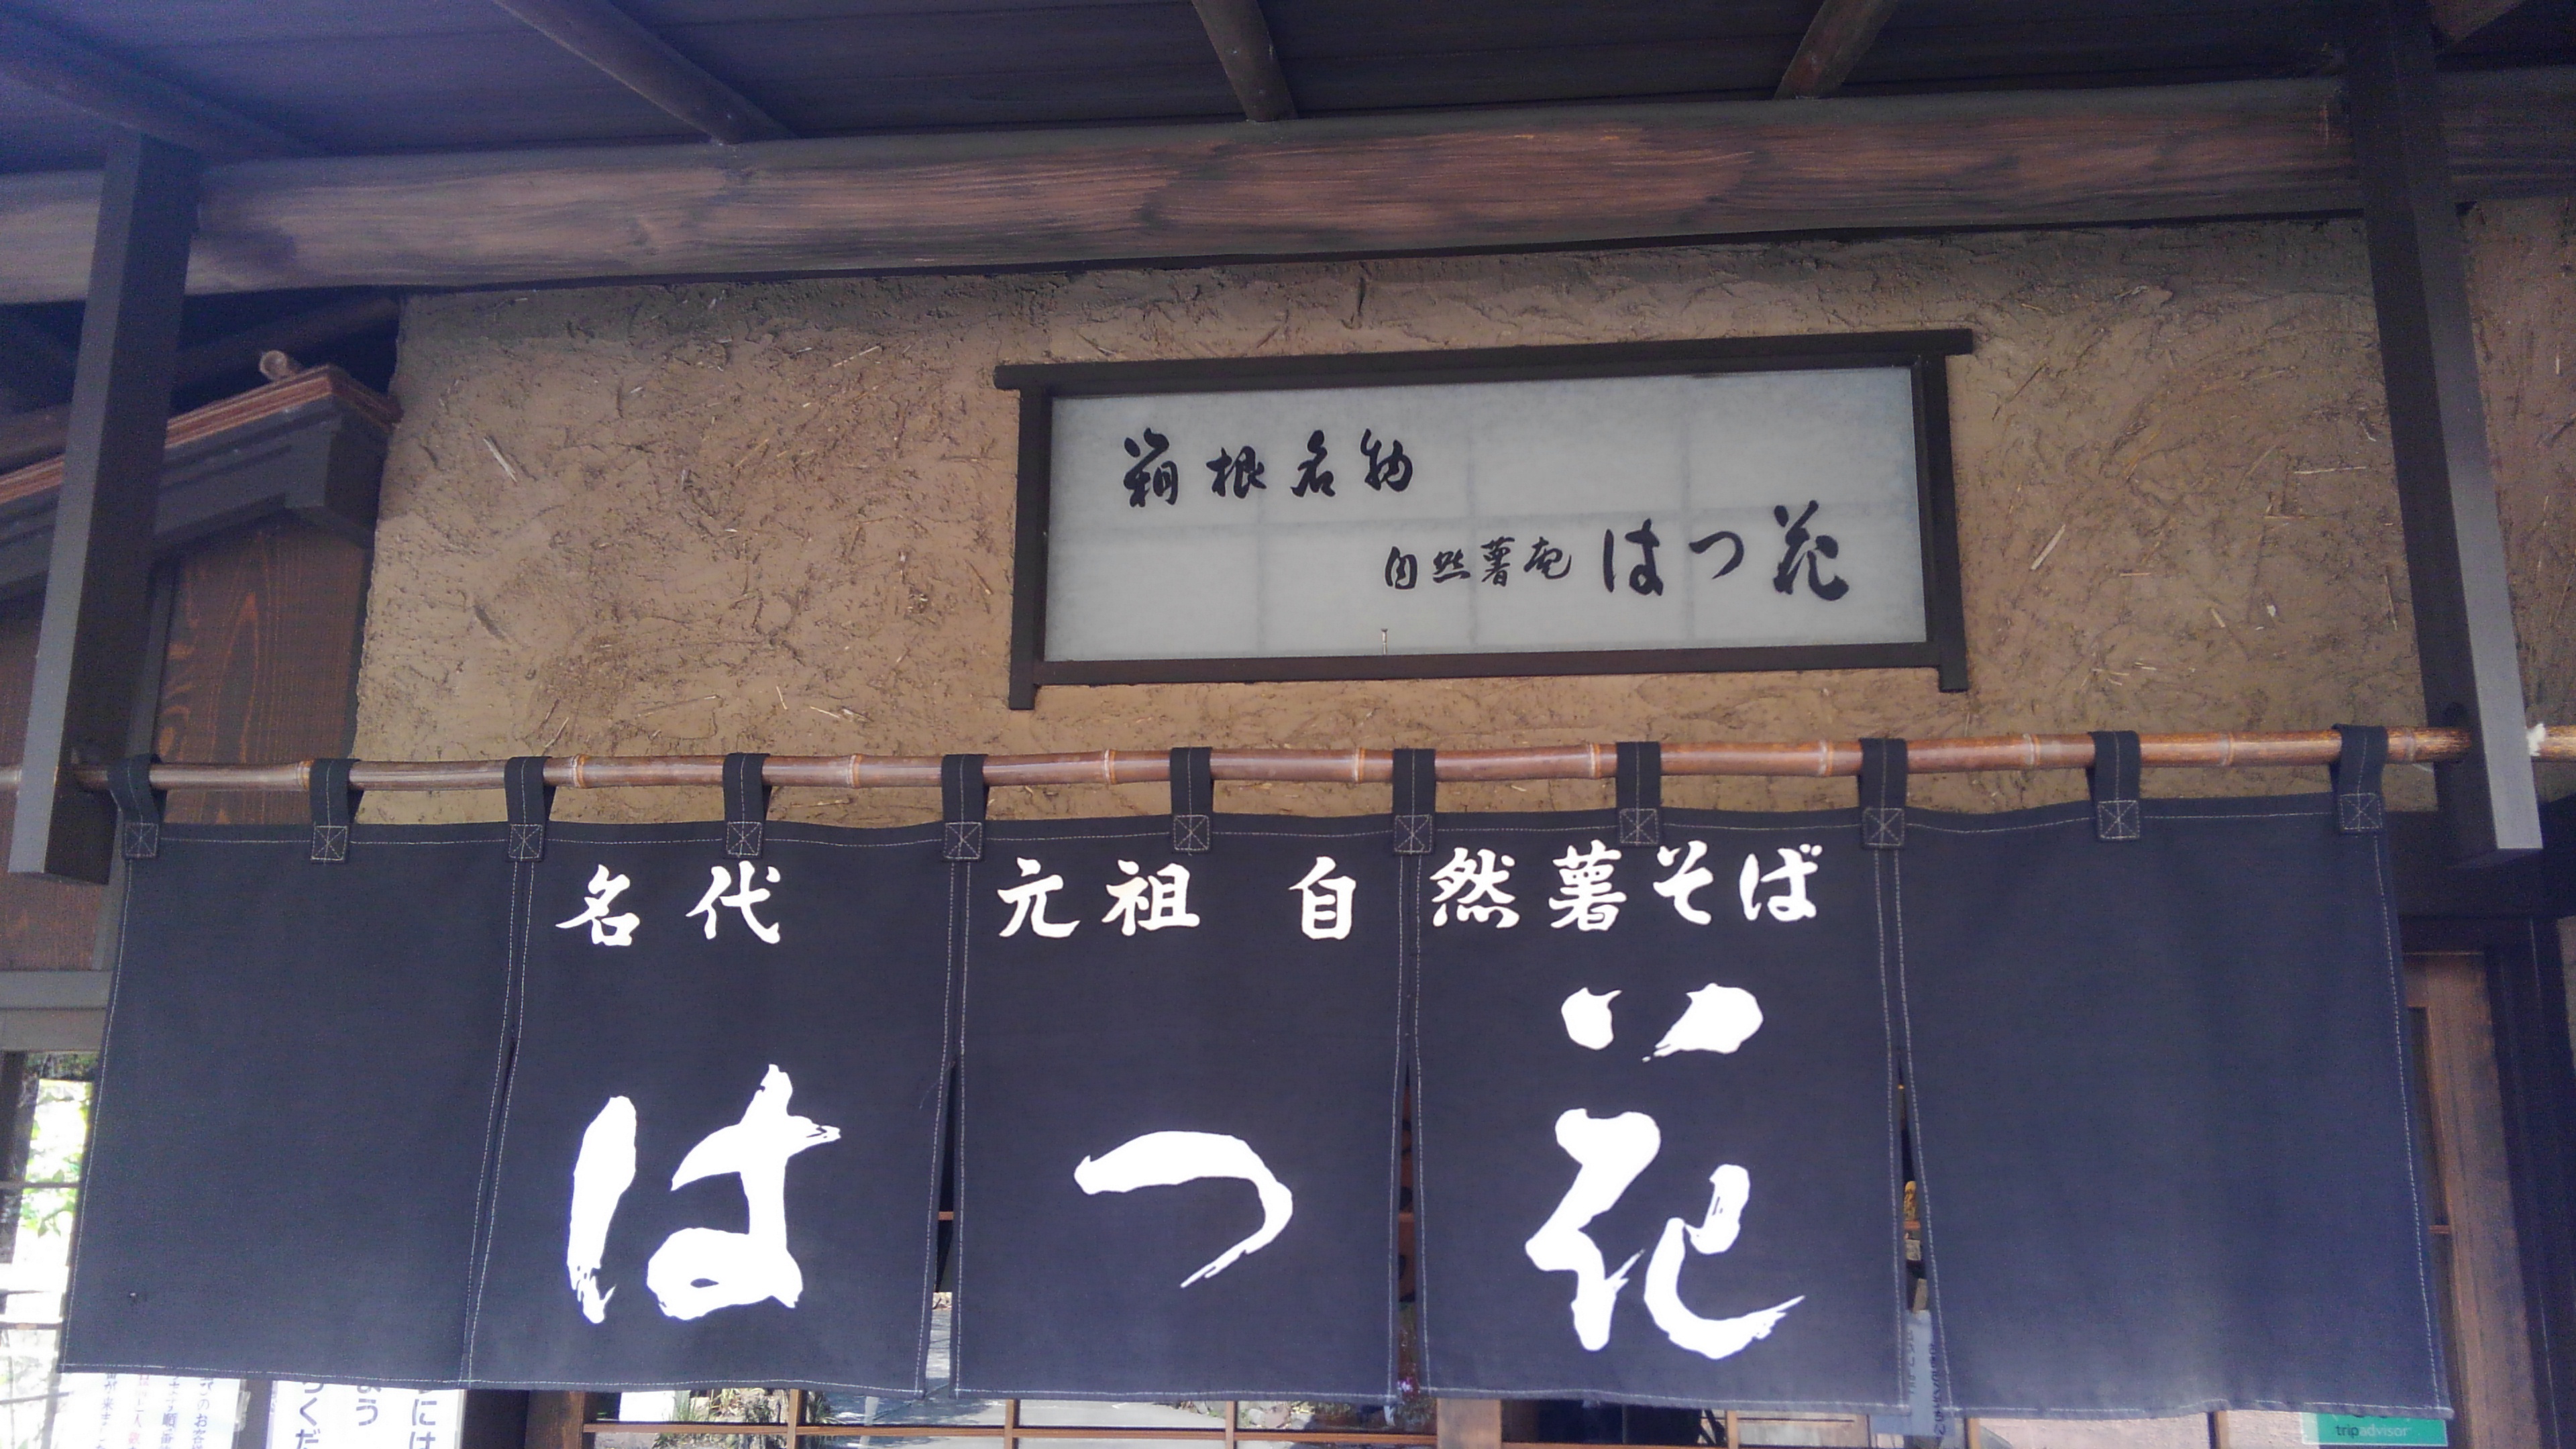 箱根名物
自然薯庵 はつ花
名代 元祖 自然薯そば
はつ花
tripadvisor